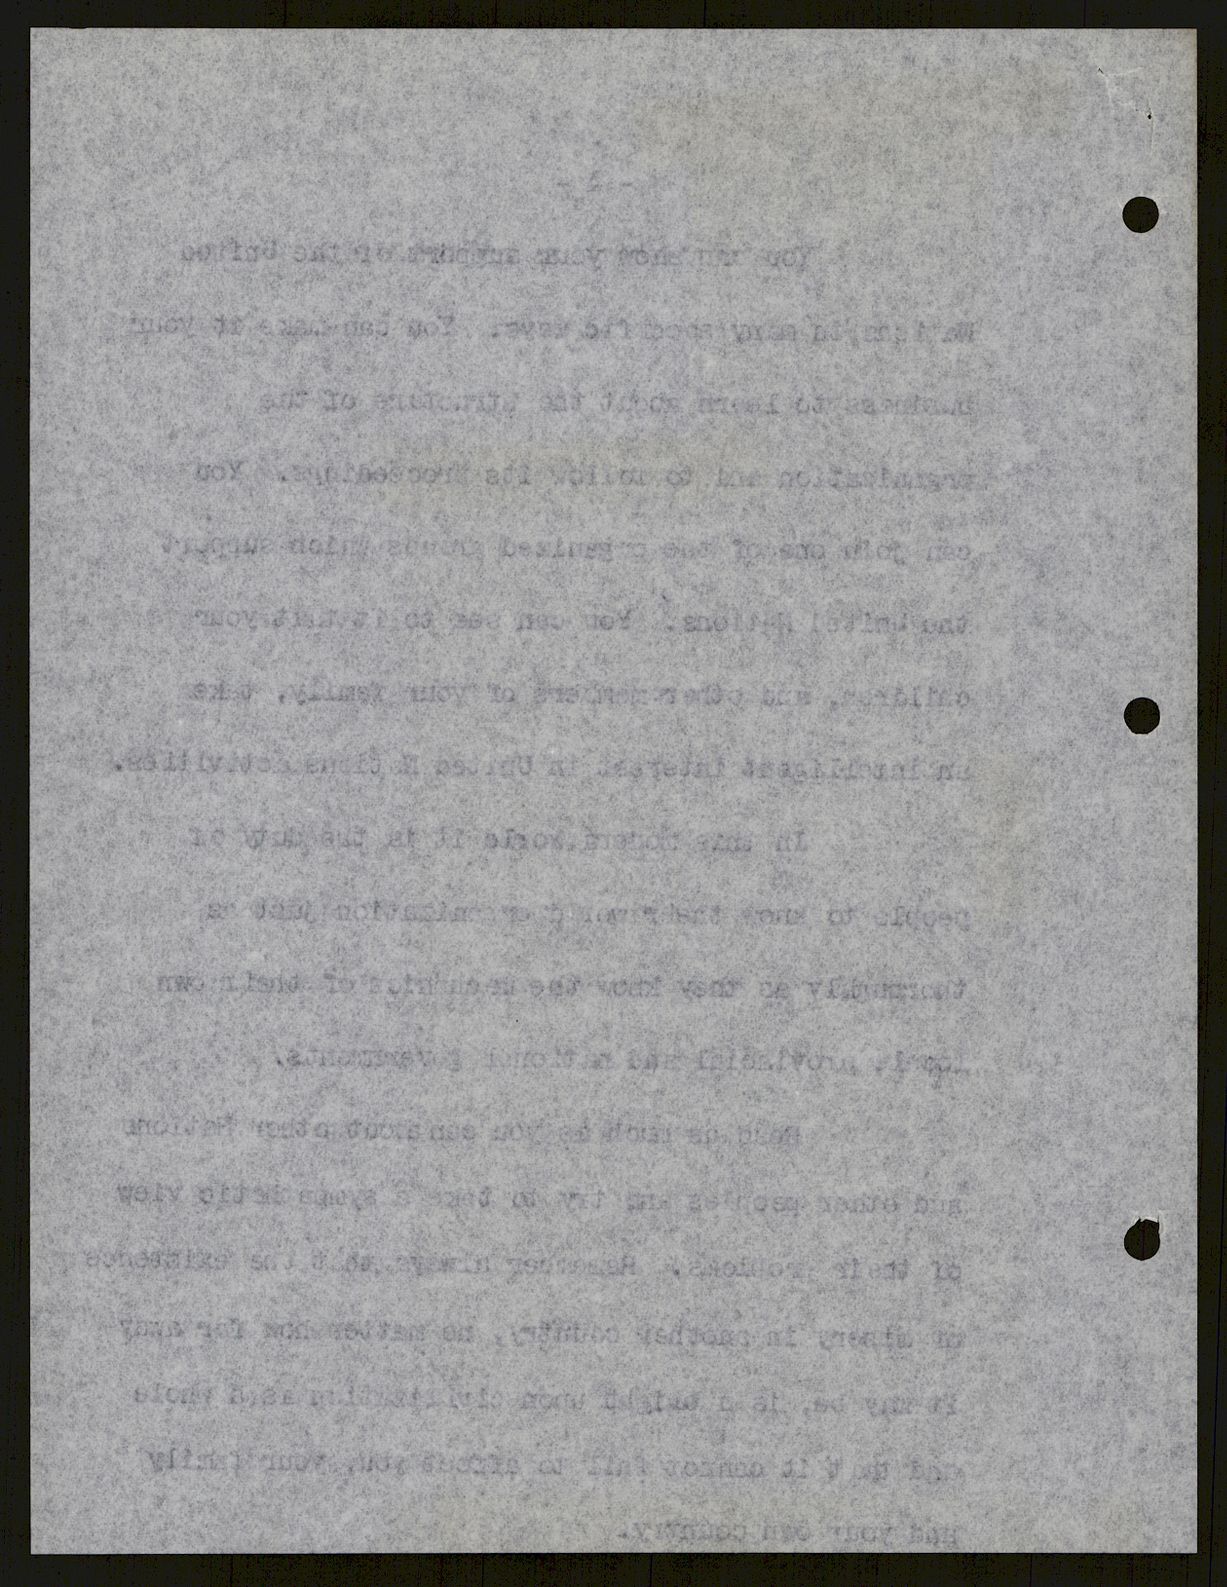 You can show your support of the United
Nations in many specific ways. You can make it your
business to learn about the structure of the
organization and to follow its proceedings. You
can join one of the organized groups which support
the United Nations. You can see to it that your
children, and other members of your family, take
an intelligent interest in United Nations activities.
In this modern world it is the duty of
people to know the world organization just as
thoroughly as they know the mechanics of their own
local, provincial and national governments.
Read as much as you can about other Nations
and other peoples and try to take a sympathetic view
of their problems. Remember always that the existence
of misery in another country, no matter how far away
it may be, is a blight upon civilization as a whole
and that it cannot fail to affect you, your family
and your own country.